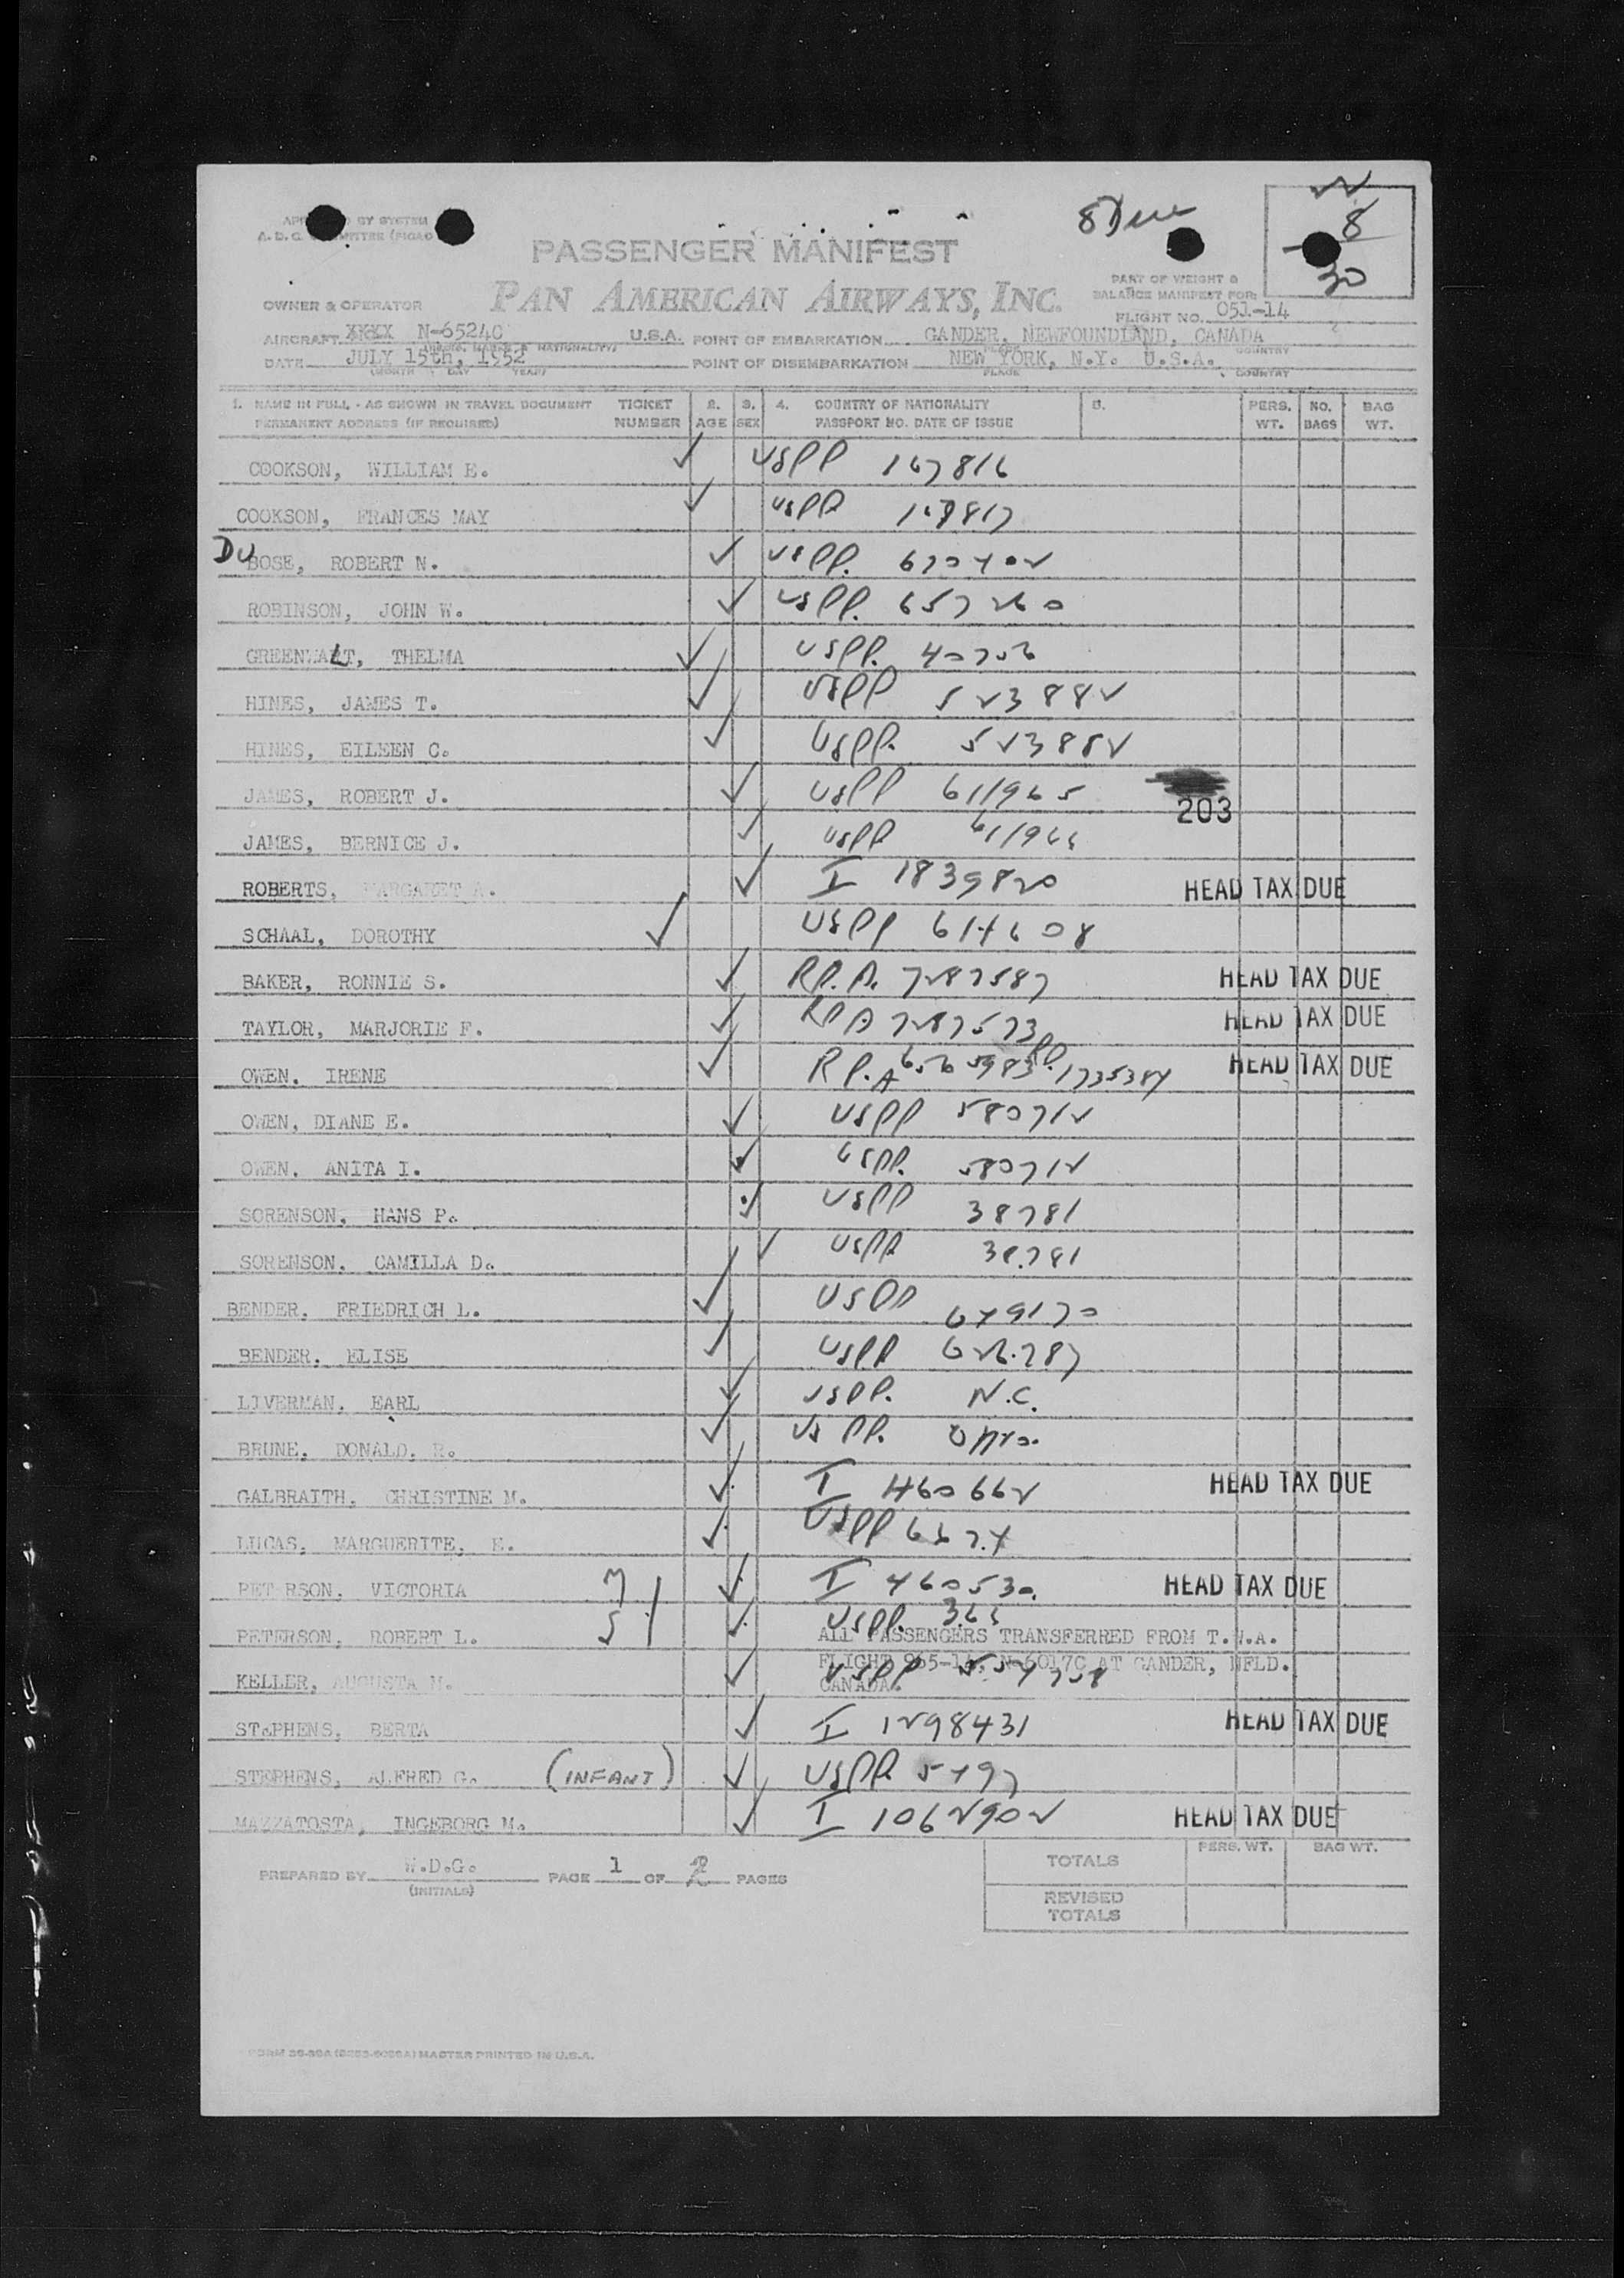 8 Due
8
30
BY SYSTEM
A. D. C.
PASSENGER MANIFEST
PART OF WEIGHT &
BALANCE MANIFEST FOR:
OWNER & OPERATOR PAN AMERICAN AIRWAYS, INC.
FLIGHT NO. 051-14
AIRCRAFT XXXX N-65240 U.S.A. POINT OF EMBARKATION GANDER, NEWFOUNDLAND, CANADA
DATE JULY 15th, 1952 POINT OF DISEMBARKATION NEW YORK, N.Y. U.S.A.
(MONTH DAY YEAR) PLACE COUNTRY
1. NAME IN FULL - AS SHOWN IN TRAVEL DOCUMENT TICKET 2. 3. 4. COUNTRY OF NATIONALITY PERS. NO. BAG
PERMANENT ADDRESS (IF REQUIRED) NUMBER AGE SEX PASSPORT NO. DATE OF ISSUE WT. BAGS WT.
COOKSON, WILLIAM E. USPP 167816
COOKSON, FRANCES MAY USPP
DUBOSE, ROBERT N. USPP. 670402
ROBINSON, JOHN W. USPP. 657260
GREENWALT, THELMA USPP.
HINES, JAMES T. USPP 523882
HINES, EILEEN C. USPP. 523882
JAMES, ROBERT J. USPP 611965
203
JAMES, BERNICE J. USPP 611966
ROBERTS, MARGARET A. I 1839820 HEAD TAX DUE
SCHAAL, DOROTHY USPP 614608
BAKER, RONNIE S. R.P.A. 7287587 HEAD TAX DUE
TAYLOR, MARJORIE F. RPA 7287573 HEAD TAX DUE
OWEN, IRENE R.P.A PP. 1735384 HEAD TAX DUE
OWEN, DIANE E. USPP 580712
OWEN, ANITA I. USPP. 580712
SORENSON, HANS P. USPP 38781
SORENSON, CAMILLA D. USPP 38781
BENDER, FRIEDRICH L. USPP 649170
BENDER, ELISE USPP 626787
LIVERMAN, EARL USPP. N.C.
BRUNE, DONALD, R. US PP.
GALBRAITH, CHRISTINE M. I 460662 HEAD TAX DUE
LUCAS, MARGUERITE, E. USPP
PETERSON, VICTORIA M I 460530. HEAD TAX DUE
PETERSON, ROBERT L. S USPP.
ALL PASSENGERS TRANSFERRED FROM T.W.A.
FLIGHT 965-14, N-6017C AT GANDER, NFLD.
CANADA.
KELLER, AUGUSTA M. USPP
STEPHENS, BERTA I 1298431 HEAD TAX DUE
STEPHENS, ALFRED G. (INFANT) USPP 5497
MAZZATOSTA, INGEBORG M. I 1062902 HEAD TAX DUE
PERS. WT. BAG WT.
TOTALS
PREPARED BY W.D.G. PAGE 1 OF 2 PAGES
(INITIALS)
REVISED
TOTALS
MASTER PRINTED IN U.S.A.